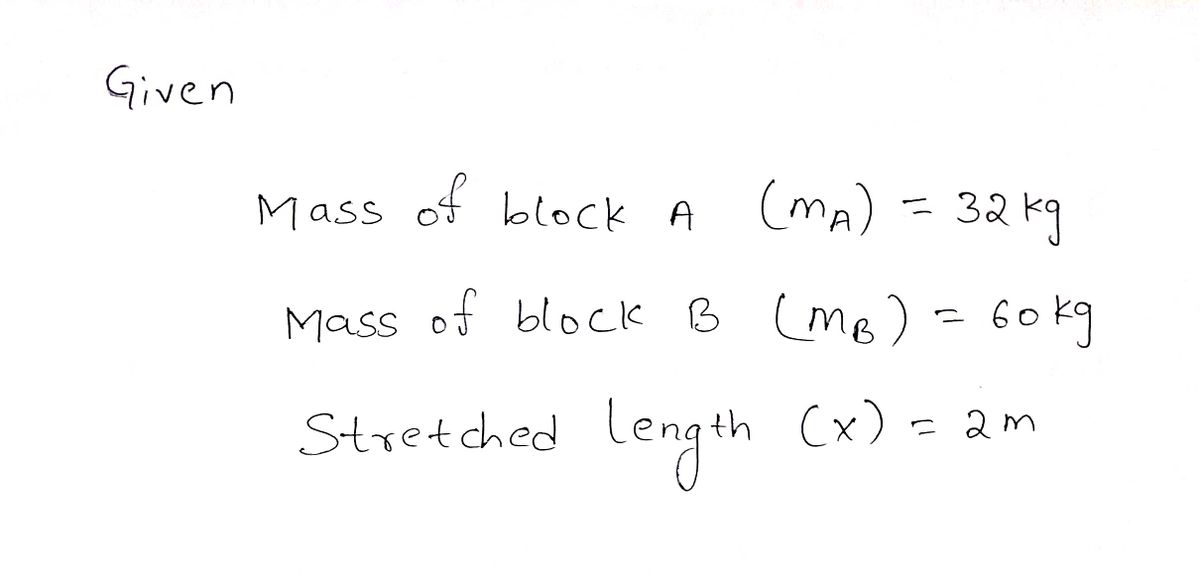 Given
Mass of block A (mA) = 32 kg
Mass of block B (mB) = 60 kg
Stretched length (x) = 2 m